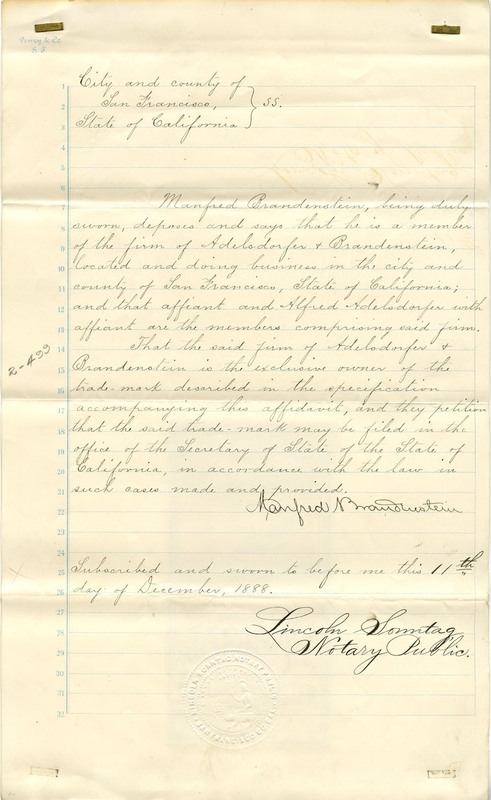 City and county of
San Francisco, } ss.
State of California
Manfred Brandenstein, being duly
sworn, deposes and says that he is a member
of the firm of Adelsdorfer & Brandenstein,
located and doing business in the city and
county of San Francisco, State of California;
and that affiant and Alfred Adelsdorfer with
affiant are the members comprising said firm.
That the said firm of Adelsdorfer &
Brandenstein is the exclusive owner of the
trade-mark described in the specification
accompanying this affidavit, and they petition
that the said trade-mark may be filed in the
office of the Secretary of State of the State of
California, in accordance with the law in
such cases made and provided.
Manfred Brandenstein
Subscribed and sworn to before me this 11th
day of December, 1888.
Lincoln Sonntag
Notary Public.
2-499
1
2
3
4
5
6
7
8
9
10
11
12
13
14
15
16
17
18
19
20
21
22
23
24
25
26
27
28
29
30
31
32